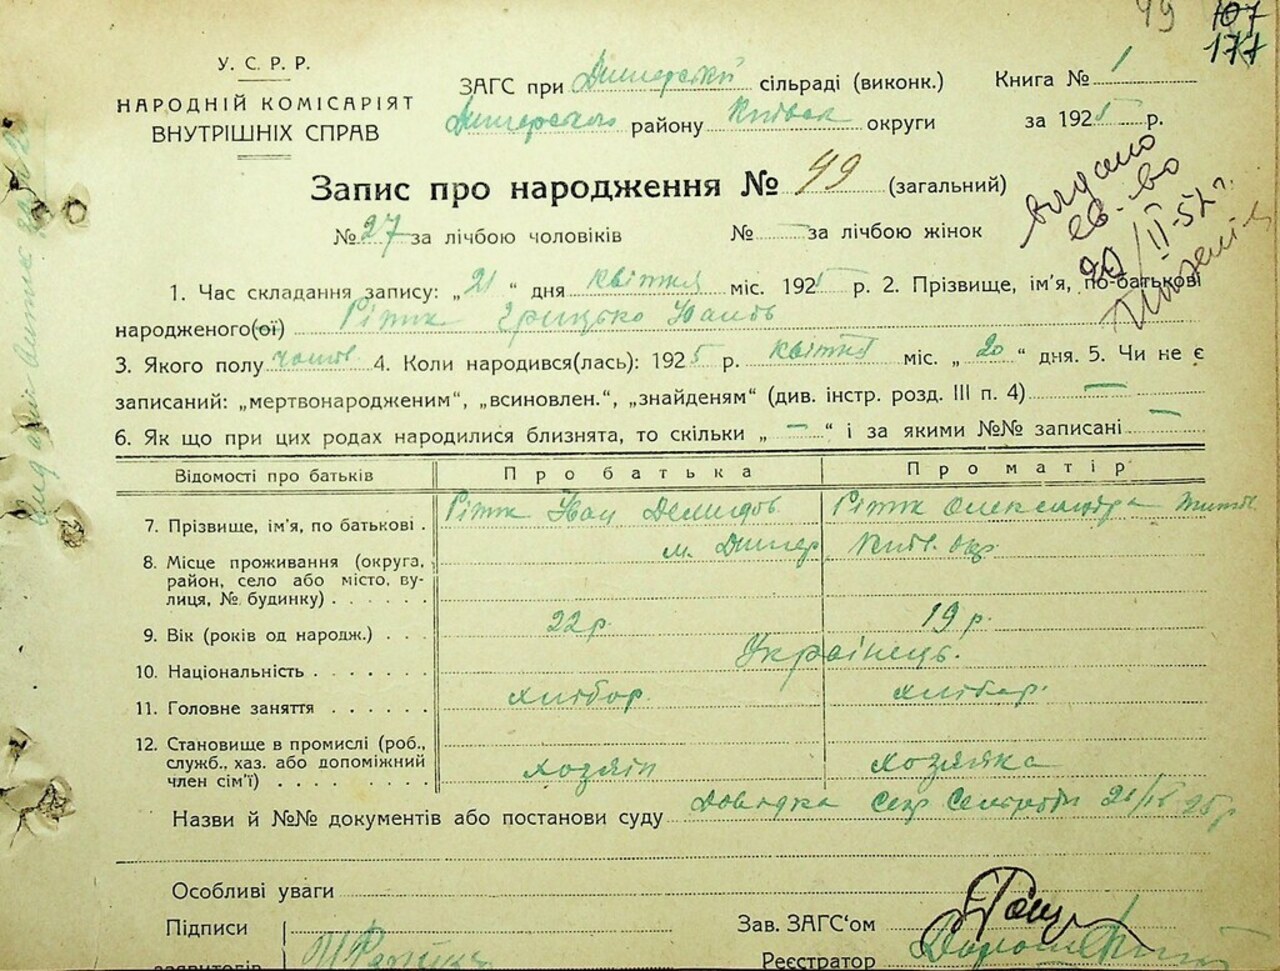 49 107
177
У. С. Р. Р.
НАРОДНІЙ КОМІСАРІЯТ
ВНУТРІШНІХ СПРАВ
ЗАГС при Димерській сільраді (виконк.)
Димерського району Київськ округи
Книга № 1
за 1925 р.
Запис про народження № 49 (загальний)
№ 27 за лічбою чоловіків № — за лічбою жінок
видано
св-во
20/II-57 г.
1. Час складання запису: „21“ дня квітня міс. 1925 р. 2. Прізвище, ім'я, по-батькові
народженого(ої) Грицько Іванів
3. Якого полу чолов. 4. Коли народився(лась): 1925 р. квітня міс. „20“ дня. 5. Чи не є
записаний: „мертвонародженим“, „всиновлен.“, „знайденям“ (див. інстр. розд. III п. 4) —
6. Як що при цих родах народилися близнята, то скільки „—“ і за якими №№ записані —
Відомості про батьків Про батька Про матір
7. Прізвище, ім'я, по батькові . Іван Демидов Олександра
8. Місце проживання (округа, м. Димер Київ. окр.
район, село або місто, ву-
лиця, № будинку) . . . . . .
9. Вік (років од народж.) . . . 22 р. 19 р.
10. Національність . . . . . . . Українець.
11. Головне заняття . . . . . . хлібор. хлібор.
12. Становище в промислі (роб.,
служб., хаз. або допоміжний
член сім'ї) . . . . . . . . хозяін хозяйка
Назви й №№ документів або постанови суду Довідка Секр Сельради 21/IV 25 р
Особливі уваги
Підписи
заявителів
Зав. ЗАГС'ом
Реєстратор